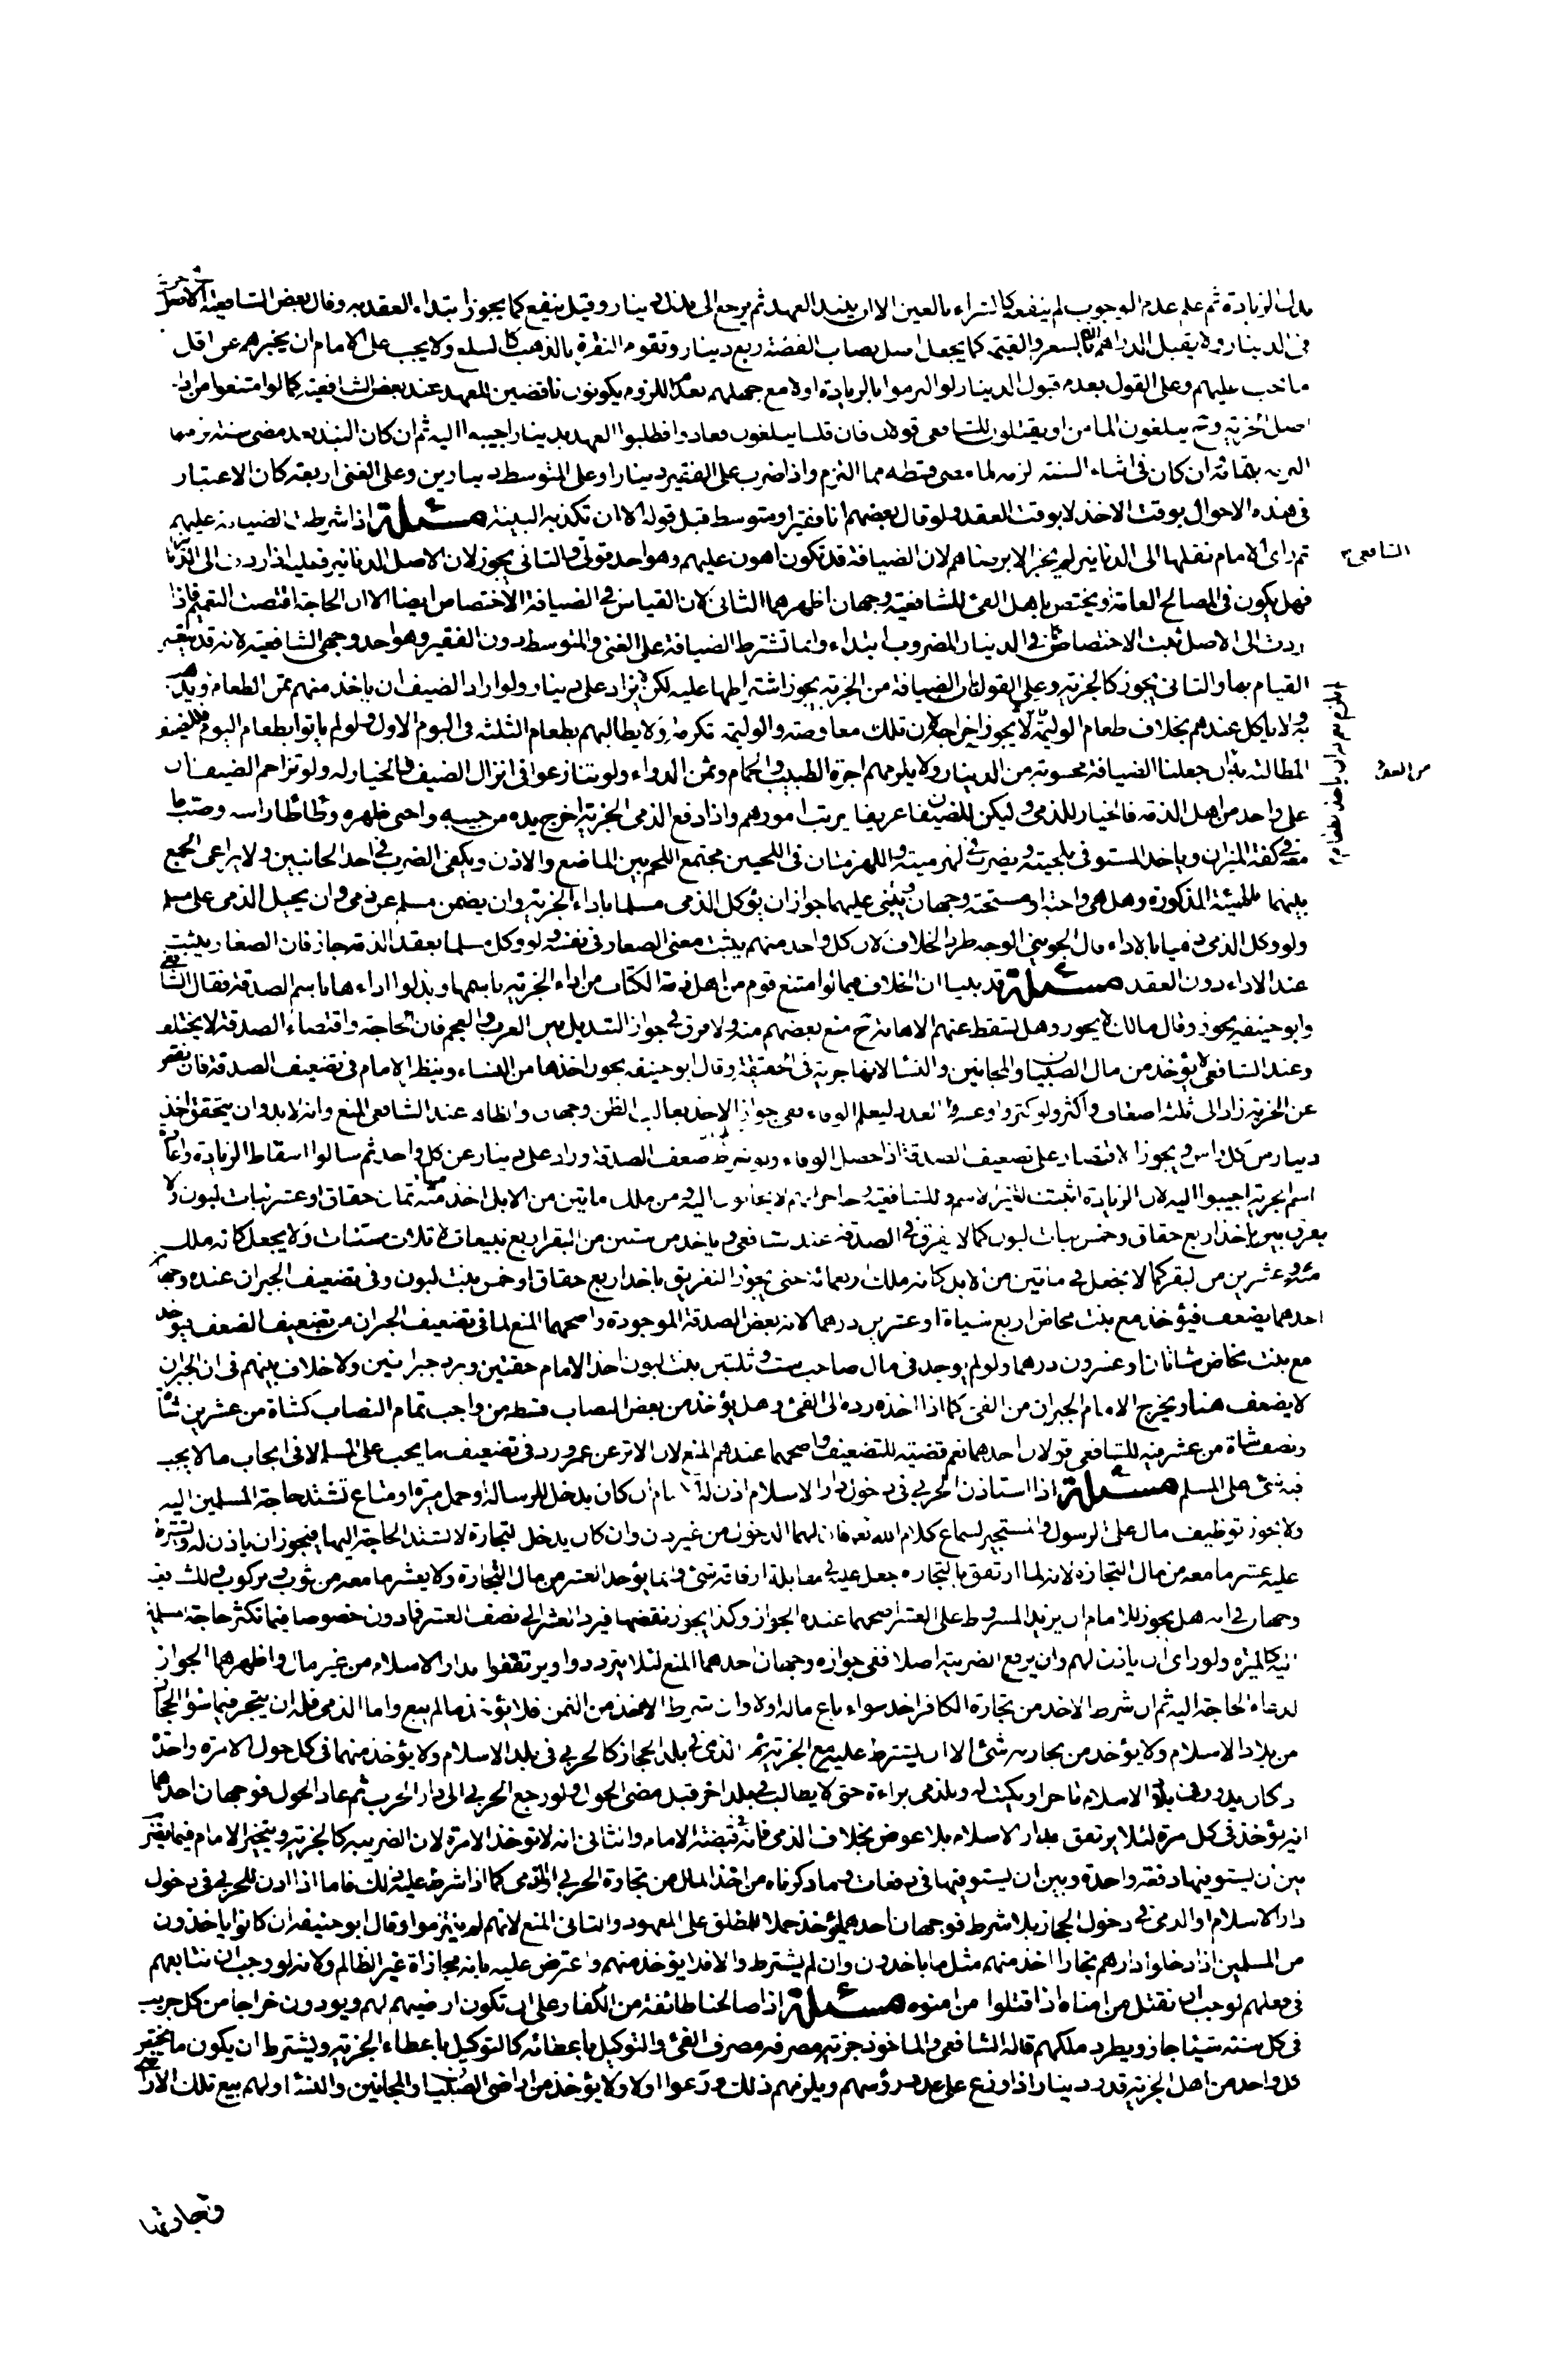 بذلت الزيادة ثم علم عدم الوجوب لم ينفعه كالشراء بالعين الا ان ينبذ العهد ثم يرجع الى بذل دينار وقيل ينفع كما يجوز ابتداء العقد به وقال بعض الشافعية الاصل
في الدينار ولا يقبل الدراهم الا بالسعر والقيمة كما يجعل اصل نصاب الفضة ربع دينار وتقوم النقرة بالذهب كالسلع ولا يجب على الامام ان يخبرهم عن اقل
ما يجب عليهم وعلى القول بعدم قبول الدينار لو التزموا بالزيادة اولا مع جهلهم بعدم اللزوم يكونون ناقضين للعهد عند بعض الشافعية كما لو امتنعوا من اداء
اصل الجزية وح يبلغون المامن او يقتلون للشافعي قولان فان قلنا يبلغون فعادوا فطلبوا العهد بدينار اجيبوا اليه ثم ان كان النبذ بعد مضي سنة لزمها
بتمامه وان كان في اثناء السنة لزمه لما مضى قسطه مما التزم واذا ضرب على الفقير دينارا وعلى المتوسط دينارين وعلى الغني اربعة كان الاعتبار
في هذه الاحوال بوقت الاخذ لا بوقت العقد ولو قال بعضهم انا فقير او متوسط قبل قوله الا ان تكذبه البينة مسئلة اذا شرطت الضيافة عليهم
ثم راى الامام نقلها الى الدنانير لم يجز الا برضاهم لان الضيافة قد تكون اهون عليهم وهو احد قولي والثاني يجوز لان الاصل الدنانير فعليه اذا ردت الى الدنانير
الشافعي
فهل يكون في المصالح العامة او يختص باهل الفئ للشافعية وجهان اظهرهما الثاني لان القياس في الضيافة الاختصاص ايضا الا ان الحاجة اقتضت التعميم فاذا
ردت الى الاصل ثبت الاختصاص كما في الدينار المضروب ابتداء وانما تشترط الضيافة على الغني والمتوسط دون الفقير وهو احد وجهي الشافعية لانه قد يتعسر
القيام بها والثاني يجوز كالجزية وعلى القول بان الضيافة من الجزية يجوز اشتراطها عليه لكن لا يزاد على دينار ولو اراد الضيف ان ياخذ منهم ثمن الطعام ويذهب
به ولا ياكل عندهم بخلاف طعام الوليمة لا يجوز اخراجه لان تلك معاوضة والوليمة تكرمة ولا يطالبهم بطعام الثلثة في اليوم الاول ولو لم ياتوا بطعام اليوم فللضيف
المطالبة به ان جعلنا الضيافة محسوبة من الدينار ولا يلزمهم اجرة الطبيب والحمام وثمن الدواء ولو تنازعوا في انزال الضيف فالخيار له ولو تزاحم الضيفان
من الغد
على واحد من اهل الذمة فالخيار للذمي وليكن للضيفان عريفا يرتب امورهم واذا دفع الذمي الجزية اخرج يده من جيبه واحنى ظهره وطاطا راسه وصب ما
معه في كفة الميزان وياخذ المستوفى بلحيته ويضرب في لهزميته واللهزمتان في اللحيين مجتمع اللحم بين الماضغ والاذن ويكفي الضرب في احد الجانبين ولا يراعى الجمع
بينهما للهيئة المذكورة وهل هي واجبة او مستحبة وجهان ويبتني عليهما جواز ان يوكل الذمي مسلما باداء الجزية وان يضمن مسلم عن ذمي وان يحيل الذمي على مسلم
ولو وكل الذمي ذميا بالاداء قال الجويني الوجه طرد الخلاف لان كل واحد منهم يثبت معنى الصغار في نفسه ولو وكل مسلما بعقد الذمة جاز فان الصغار يثبت
عند الاداء دون العقد مسئلة قد بينا ان الخلاف فيما لو امتنع قوم من اهل ذمة الكتاب من اداء الجزية باسمها وبذلوا اداءها باسم الصدقة فقال الشافعي
وابو حنيفة يجوز وقال مالك لا يجوز وهل تسقط عنهم الاهانة ح منع بعضهم منه ولا فرق في جواز التبديل بين العرب والعجم فان الحاجة واقتضاء الصدقة لا يختلف
وعند الشافعي لا يؤخذ من مال الصبيان والمجانين والنسا لانها جزية في الحقيقة وقال ابو حنيفة يجوز اخذها من النساء وينظر الامام في تضعيف الصدقة فان نقص
عن الجزية زاد الى ثلثة اضعاف واكثر ولو كثروا وعسر العدد ليعلم الوفاء ففي جواز الاخذ بغالب الظن وجهان والظاهر عند الشافعي المنع وانه لا بد وان يتحقق اخذ
دينار من كل راس ويجوز الاقتصار على تضعيف الصدقة اذا حصل الوفاء ضعف الصدقة وزاد على دينار عن كل واحد ثم سالوا اسقاط الزيادة واعادة
اسم الجزية اجيبوا اليه لان الزيادة اثبتت لتغير الاسم وللشافعية وجه اخر انهم لا يجابون اليه ومن ملك مائتين من الابل اخذ منه ثمان حقاق او عشر بنات لبون ولا
يفرق بين ياخذ اربع حقاق وخمس بنات لبون كما لا يفرق في الصدقة عند الشافعي وياخذ من ستين من البقر اربع تبيعات لا ثلاث مسنات ولا يجعل كانه ملك
مئة وعشرين من البقر كما لا يجعل في مائتين من الابل كانه ملك اربعمائة حتى يجوز التفريق باخذ اربع حقاق او خمس بنت لبون وفي تضعيف الجبران عنده وجهان
احدهما يضعف فيؤخذ مع بنت مخاض اربع شياة او عشرين درهما لانه بعض الصدقة الموجودة واصحهما المنع لما في تضعيف الجبران من تضعيف الضعف فيؤخذ
مع بنت مخاض شاتان او عشرون درهما ولو لم يوجد في مال صاحب ست وثلثين بنت لبون اخذ الامام حقتين ويرد جبرانين ولا خلاف بينهم في ان الجبران
لا يضعف هنا ويخرج الامام الجبران من الفئ كما اذا اخذه رده الى الفئ وهل يؤخذ من بعض النصاب قسطه من واجب تمام النصاب كشاة من عشرين شاة
ونصف شاة من عشر فيه للشافعي قولان احدهما نعم قضية للتضعيف واصحهما عندهم المنع لان الاثر عن عمر ورد في تضعيف ما يجب على المسلم لا في ايجاب ما لا يجب
فيه شئ على المسلم مسئلة اذا استاذن الحربي في دخول دار الاسلام اذن له الامام ان كان يدخل للرسالة او حمل ميرة او متاع تشتد حاجة المسلمين اليه
ولا يجوز توظيف مال على الرسول والمستجير لسماع كلام الله تعالى فان لهما الدخول من غير اذن وان كان يدخل لتجارة لا تشتد الحاجة اليها فيجوز ان ياذن له ويشترط
عليه عشر ما معه من مال التجارة لانه لما ارتفق بالتجارة جعل عليه في مقابلة ارفاقه شئ وانما يؤخذ العشر من مال التجارة ولا يعشر ما معه من ثوب ومركوب وللشافعية
وجهان في انه هل يجوز للامام ان يزيد المشروط على العشر اصحهما عنده الجواز وكذا يجوز نقضها فيرد العشر الى نصف العشر فما دون خصوصا فيما تكثر حاجة المسلمين
اليه كالميرة ولو راى ان ياذن لهم وان يرفع الضريبة اصلا ففي جوازه وجهان احدهما المنع لئلا يترددوا ويرتفقوا بدار الاسلام من غير مال واظهرهما الجواز
لدعاء الحاجة اليه ثم ان شرط الاخذ من تجارة الكافر اخذ سواء باع ماله او لا وان شرط الاخذ من الثمن فلا يؤخذ ما لم يبع واما الذمي فله ان يتجر فيما سوى الحجاز
من بلاد الاسلام ولا يؤخذ من تجارته شئ الا ان يشترط عليه مع الجزية ثم الذمي في بلد الحجاز كالحربي في بلد الاسلام ولا يؤخذ منهما في كل حول الا مرة واحدة
بلاد الاسلام تاجرا ويكتب له وللذمي براءة حتى لا يطالب في بلد اخر قبل مضي الحول ولو رجع الحربي الى دار الحرب ثم عاد الحول فوجهان احدهما
انه يؤخذ في كل مرة لئلا يرتفق بدار الاسلام بلا عوض بخلاف الذمي فانه في قبضة الامام والثاني انه لا تؤخذ الا مرة لان الضريبة كالجزية ويتخير الامام فيما يقرر
بين ان يستوفيها دفعة واحدة وبين ان يستوفيها في دفعات وما ذكرناه من اخذ المال من تجارة الحربي او الذمي كما اذا شرط عليه ذلك فاما اذا اذن للحربي في دخول
دار الاسلام او الذمي في دخول الحجاز بلا شرط فوجهان احدهما يؤخذ حملا للمطلق على المعهود والثاني المنع لانهم لم يلتزموا وقال ابو حنيفة ان كانوا ياخذون
من المسلمين اذا دخلوا دارهم تجارا اخذ منهم مثل ما ياخذون وان لم يشترط والا فلا يؤخذ منهم واعترض عليه بانه مجازاة غير الظالم ولانه لو وجب ان نتابعهم
في فعلهم لوجب ان نقتل من امناه اذا قتلوا من امنوه مسئلة اذا صالحنا طائفة من الكفار على ان تكون ارضيهم لهم ويؤدون خراجا من كل جريب
في كل سنة شيئا جاز ويطرد ملكهم قاله الشافعي والماخوذ جزية مصرفه مصرف الفئ والتوكيل باعطائه كالتوكيل باعطاء الجزية ويشترط ان يكون ما يخص
كل واحد من اهل الجزية قدر دينار اذا وزع على عدد رؤسهم ويلزمهم ذلك زرعوا او لا ولا يؤخذ من اراضي الصبيان والمجانين والنسا ولهم بيع تلك الاراضي
وتجارتها